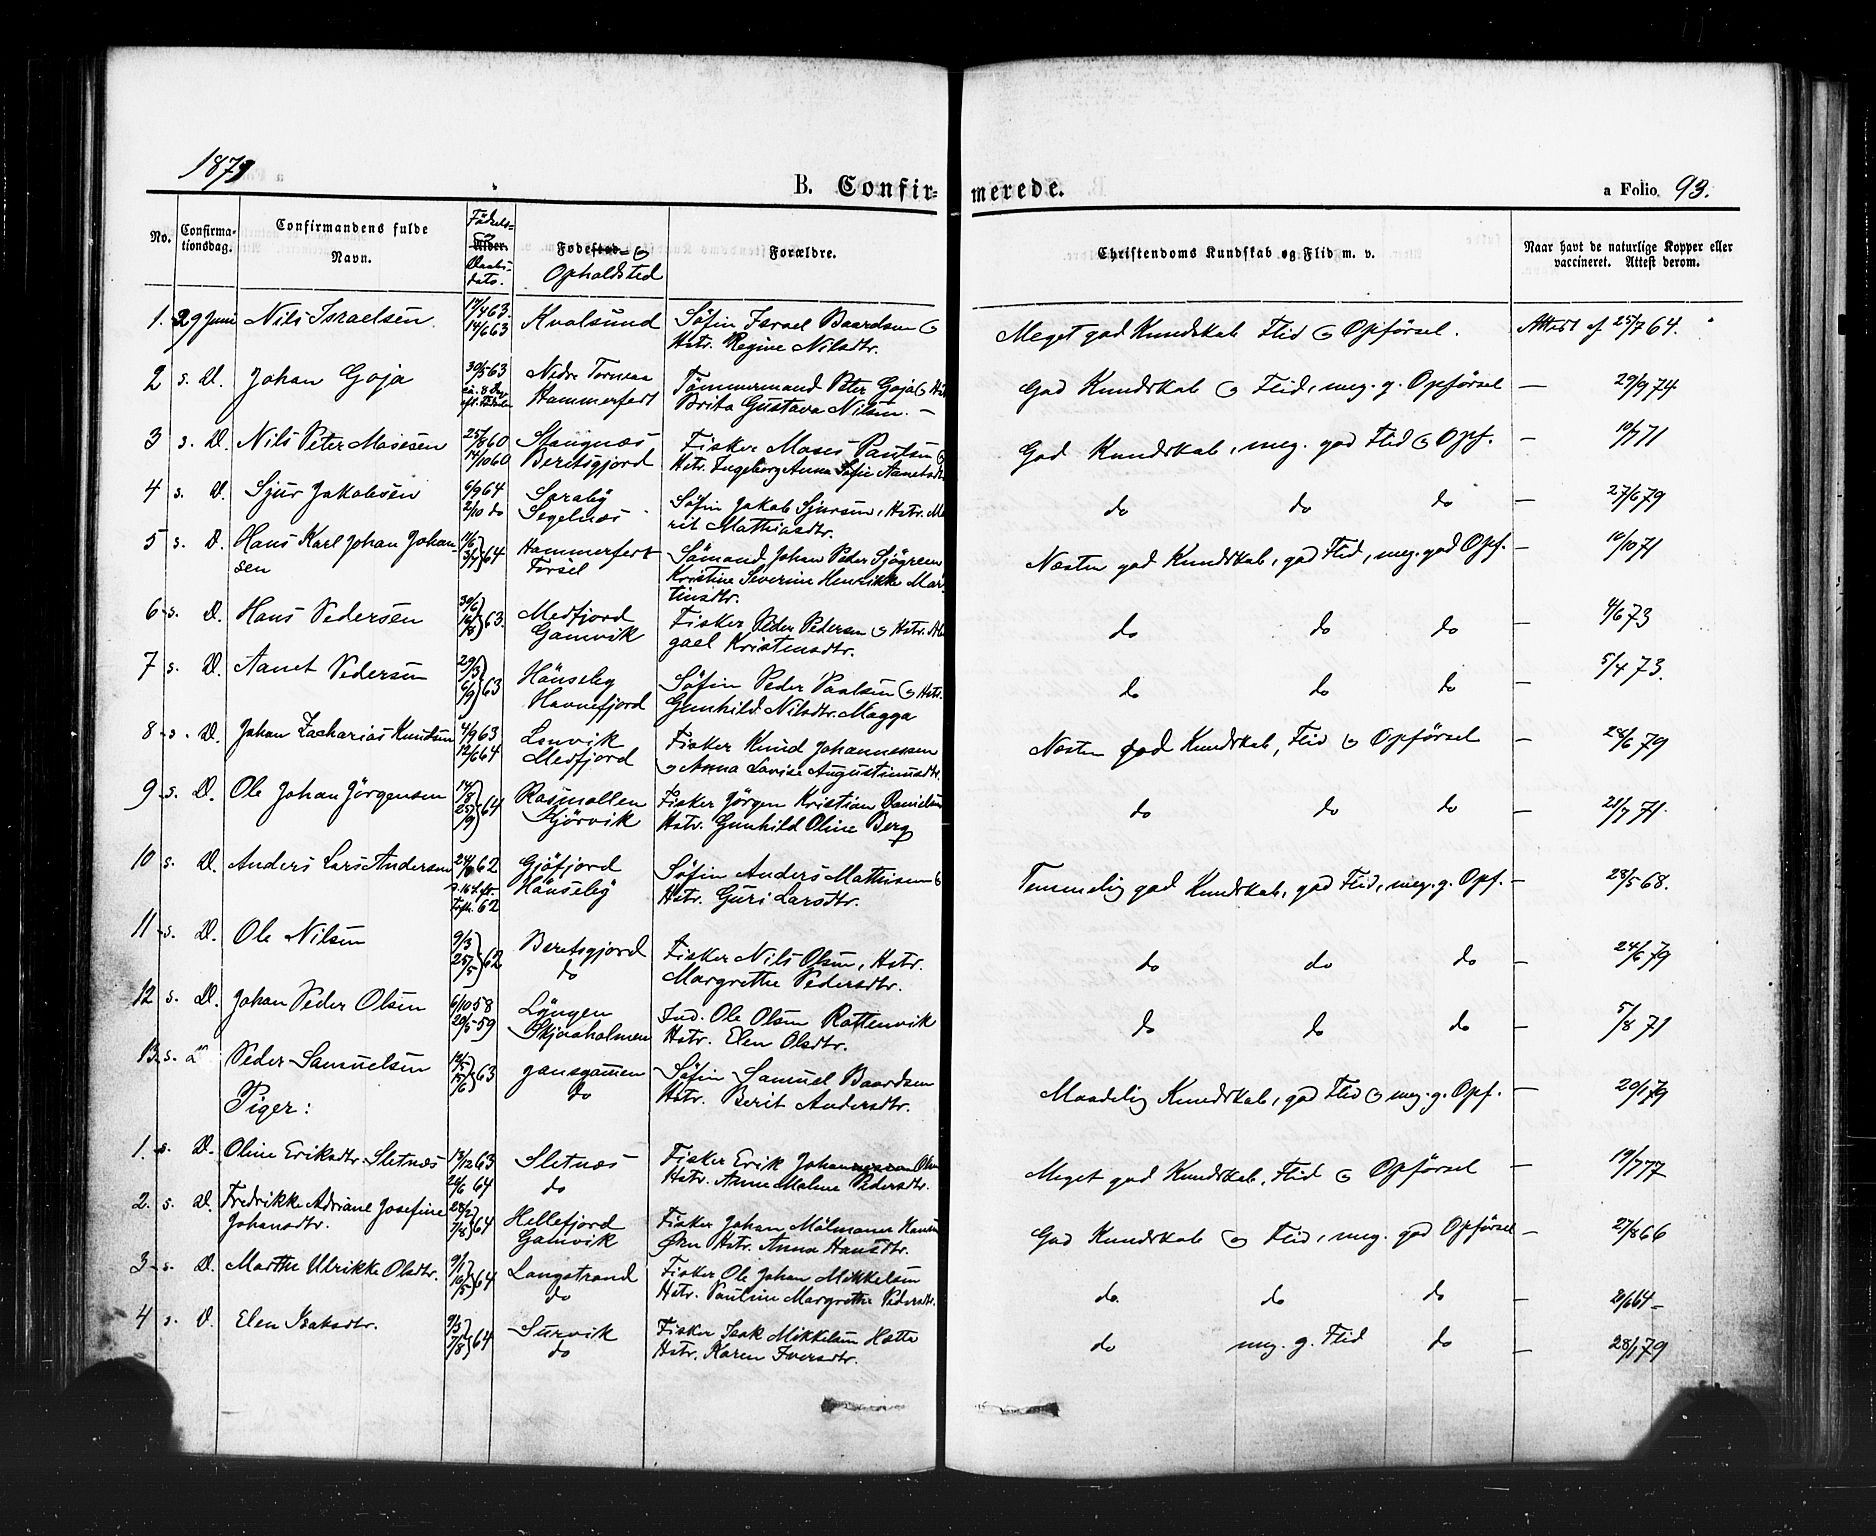 1879
B. Confirmerede.
a Folio 93.
No. Confirmationsdag. Confirmandens fulde Navn. Födsels- Alder. Daabsdato. Fødestad & Opholdsted Forældre. Christendoms Kundskab og Flid m. v. Naar havt de naturlige Kopper eller vaccineret. Attest derom.
1. 29 Juni Nils Israelsen 17/4 63. 14/6 63 Kvalsund Söfin Israel Baardsen &
Hstr. Regine Nilsdtr. Meget god Kundskab Flid & Opförsel. Attest af 25/7 64.
2 s. D. Johan Goja 30/5 63 Nedre Tornea Tömmermand Peter Goja &
Hammerfest Brita Gustava Nilsen. God Kundskab & Flid, meg. g. Opförsel — 29/9 74
3 s. D. Nils Peter Mosesen 25/8 60 Stangnæs Fisker Moses Paulsen &
14/10 60 Beretsfjord Hstr. Ingeborg Anna Sofie God Kundskab, meg. god Flid & Opf. — 10/7 71
4 s. D. Sjur Jakobsen 6/9 64 Saraby Söfin Jakob Sjursen, Hstr. Me
2/10 do Segelnæs rit Mathisdtr. do do do — 27/6 79
5 s. D. Hans Karl Johan Johan 64 Hammerfest Sömand Johan Peder Sjögreen
sen Forsöl Kristine Severine Henrikke Mar
tinsdtr. Næsten god Kundskab, god Flid, meg. god Opf. — 10/10 71
6 s. D. Hans Pedersen 30/6 16/8 63. Mefjord Fisker Peder Pedersen & Hstr. A
Gamvik gael Kristensdtr. do do do — 4/6 73
7 s. D. Aanet Pedersen 29/3 6/9 63 Hönseby Söfin Peder Paulsen & Hstr.
Havnefjord Gunhild Nilsdtr. Magga do do do — 5/4 73.
8 s. D. Johan Zacharias Knudsen 4/9 63 Lenvik Fisker Knud Johannessen
12/6 64 Mefjord & Anna Lovise Augustinusdtr. Næsten god Kundskab, Flid & Opförsel — 28/6 79
9 s. D. Ole Johan Jörgensen 14/8 25/9 64 Rasmollen Fisker Jörgen Kristian Danielsen
Kjörvik Hstr. Gunhild Oline Berg do do do — 21/7 71.
10 s. D. Anders Lars Andersen 62 Gjöfjord Söfin Anders Mathisen &
62 Hönseby Hstr. Guri Larsdtr. Temmelig god Kundskab, god Flid, meg. g. Opf. — 28/5 68.
11 s. D. Ole Nilsen 9/3 25/5 62 Beretsfjord Fisker Nils Olsen, Hstr.
do Margrethe Pedersdtr. do do do — 24/6 79
12 s. D. Johan Peder Olsen 6/10 58 Lyngen Ind. Ole Olsen Rottenvik
20/5 59 Skjaaholmen Hstr. Elen Olsdtr. do do do — 5/8 71
13 s. D. Peder Samuelsen 63 gansgamen Söfin Samuel Baardsen
do Hstr. Berit Andersdtr. Maadelig Kundskab, god Flid & meg. g. Opf. — 20/1 79
Piger:
1. s. D. Oline Eriksdtr. Sletnæs 13/12 63 Sletnæs Fisker Erik Johannessen
64 do Hstr. Anne Malene Pedersdtr. Meget god Kundskab, Flid & Opförsel — 19/7 77
2. s. D. Fredrikke Adriane Josefine 64 Hellefjord Fisker Johan
Johansdtr. Gamvik Hstr. Anna Hansdtr. God Kundskab & Flid, meg. god Opförsel — 27/8 66
3 s. D. Marthe Ulrikke Olsdtr. 9/1 16/5 64 Langstrand Fisker Ole Johan Mikkelsen
do Hstr. Pauline Margrethe Pedersdtr. do do do — 64
4 s. D. Elen Isaksdtr. 9/3 7/8 64 Survik Fisker Isak Mikkelsen Hætta
do Hstr. Karen Iversdtr. do meg. g. Flid do — 28/1 79